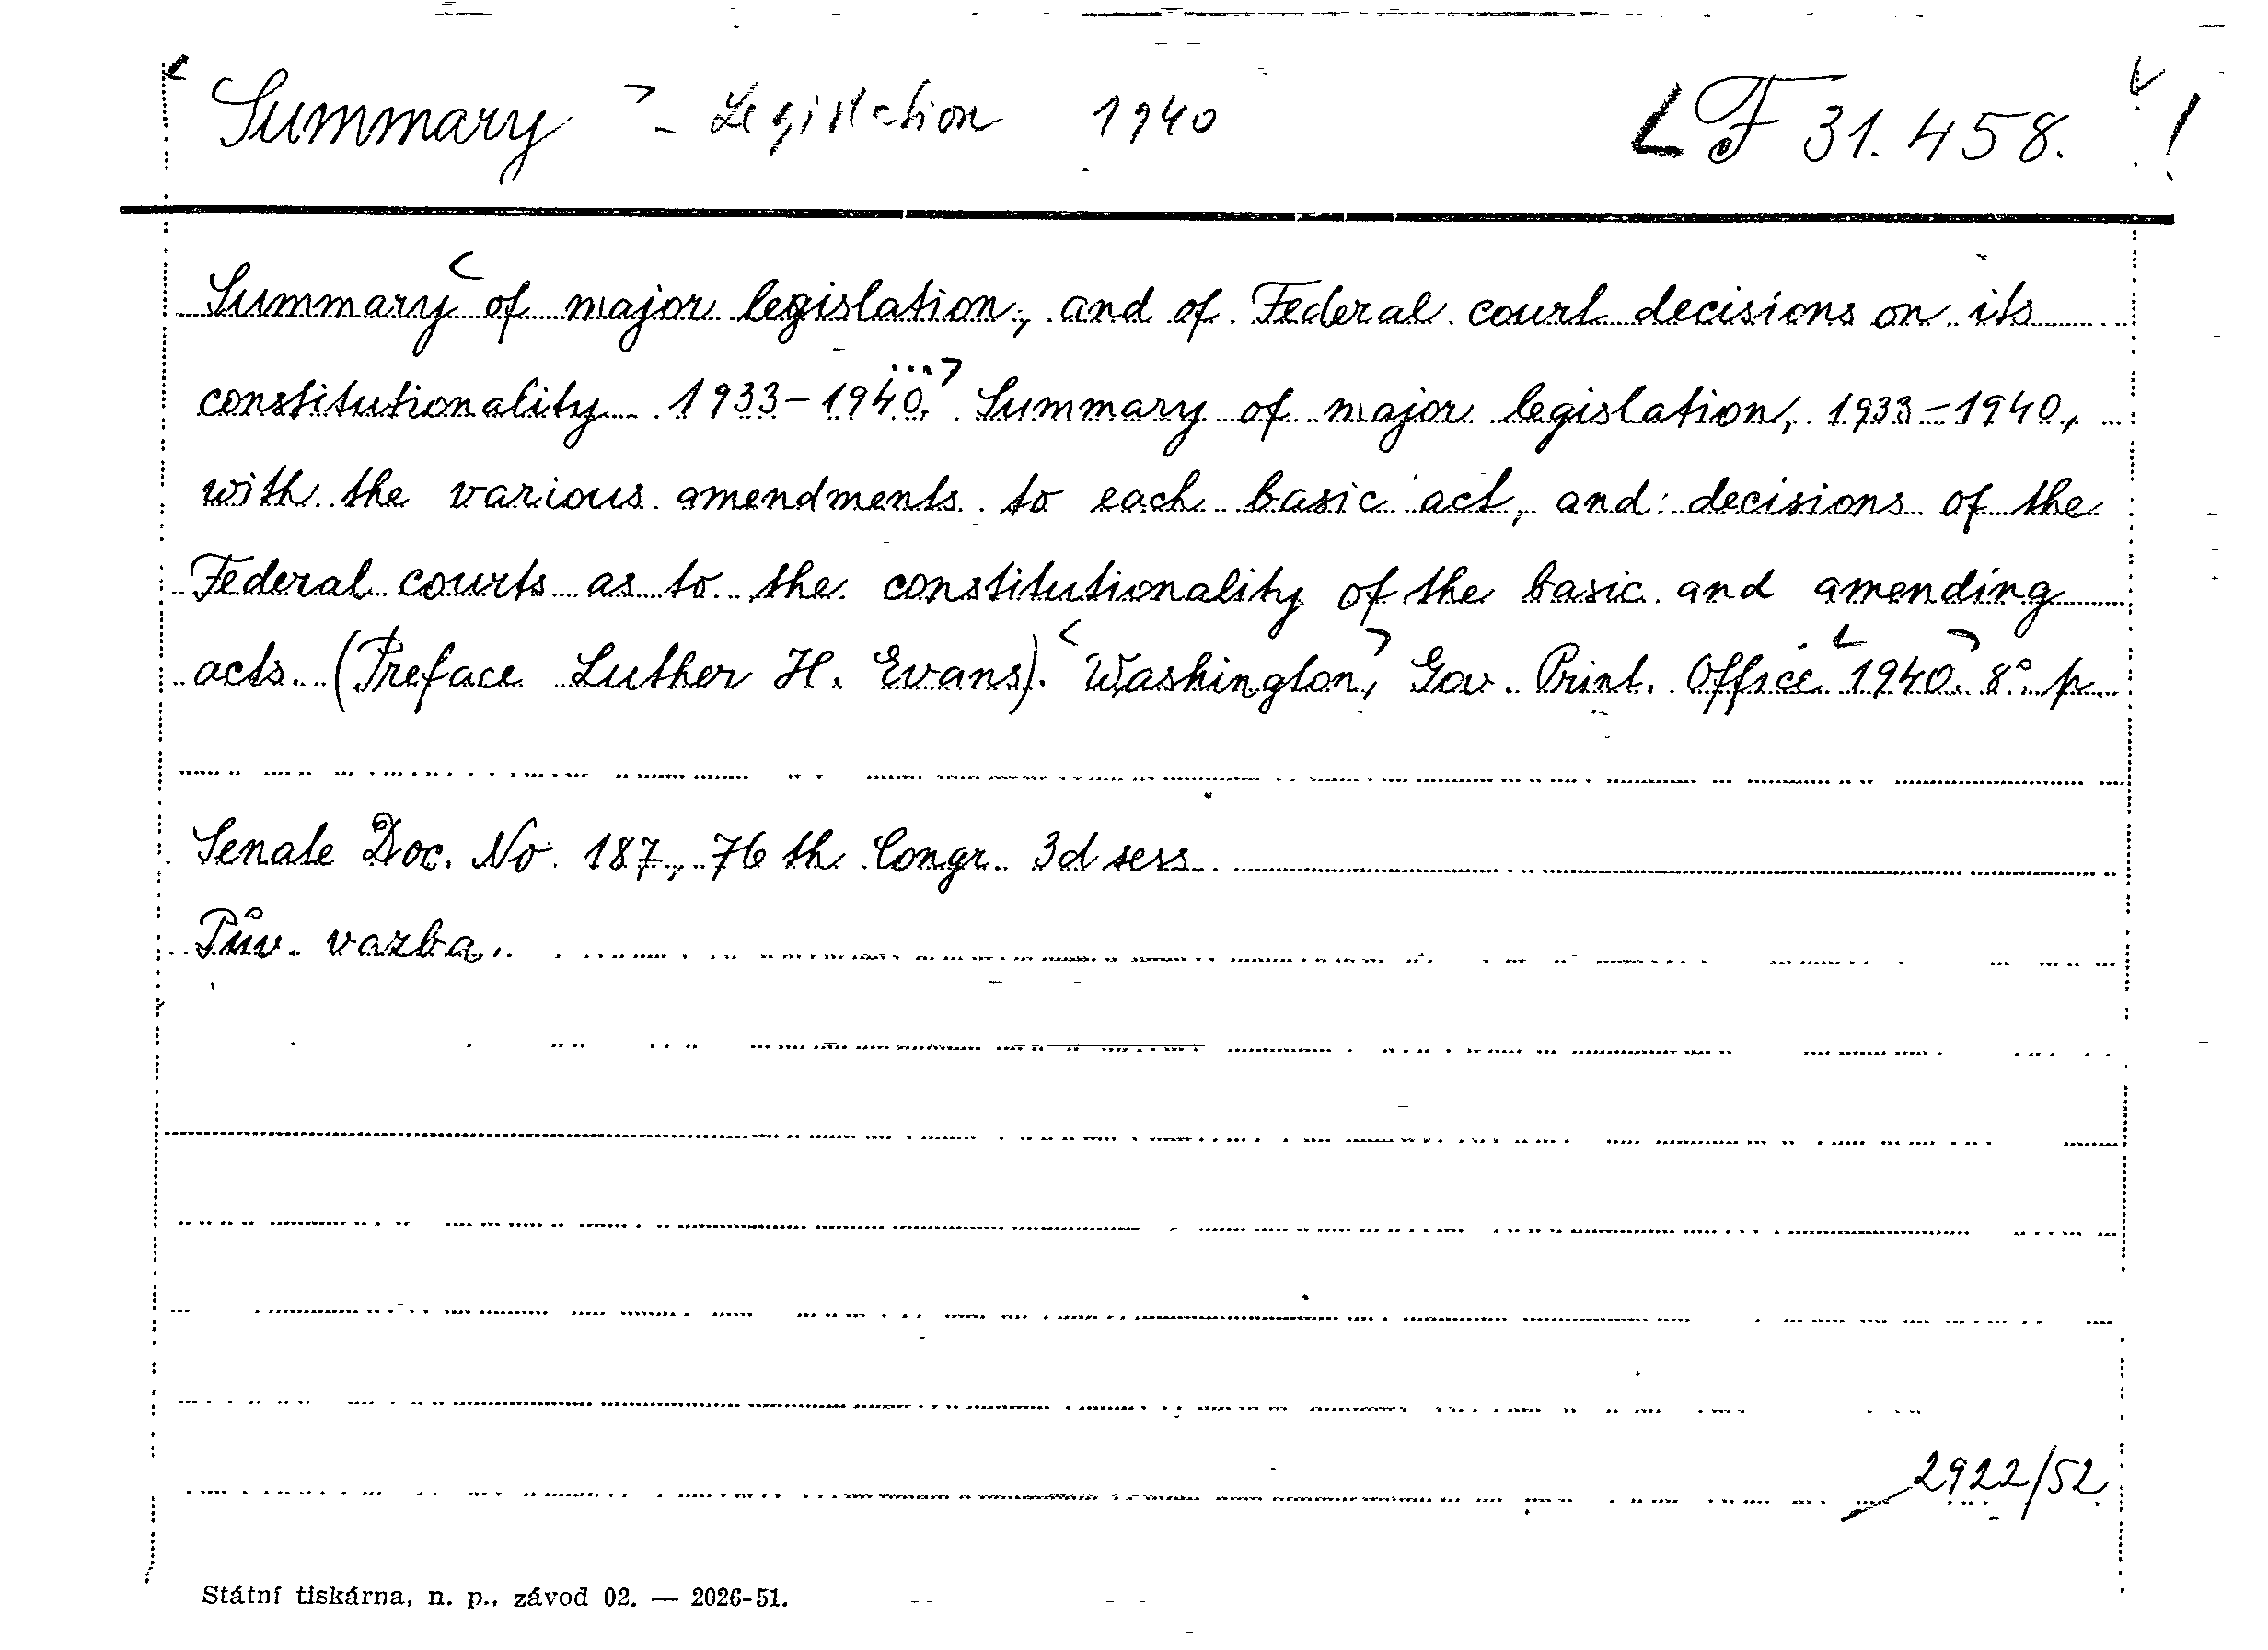 Summary - Legislation 1940 F 31.458.
Summary of major legislation, and of Federal court decisions on its
constitutionality 1933-1940. Summary of major legislation, 1933-1940,
with the various amendments to each basic act, and decisions of the
Federal courts as to the constitutionality of the basic and amending
acts. (Preface Luther H. Evans). Washington, Gov. Print. Office 1940. 8° p.
Senate Doc. No. 187, 76th Congr. 3d sess.
Pův. vazba.
2922/52
Státní tiskárna, n. p., závod 02. — 2026-51.